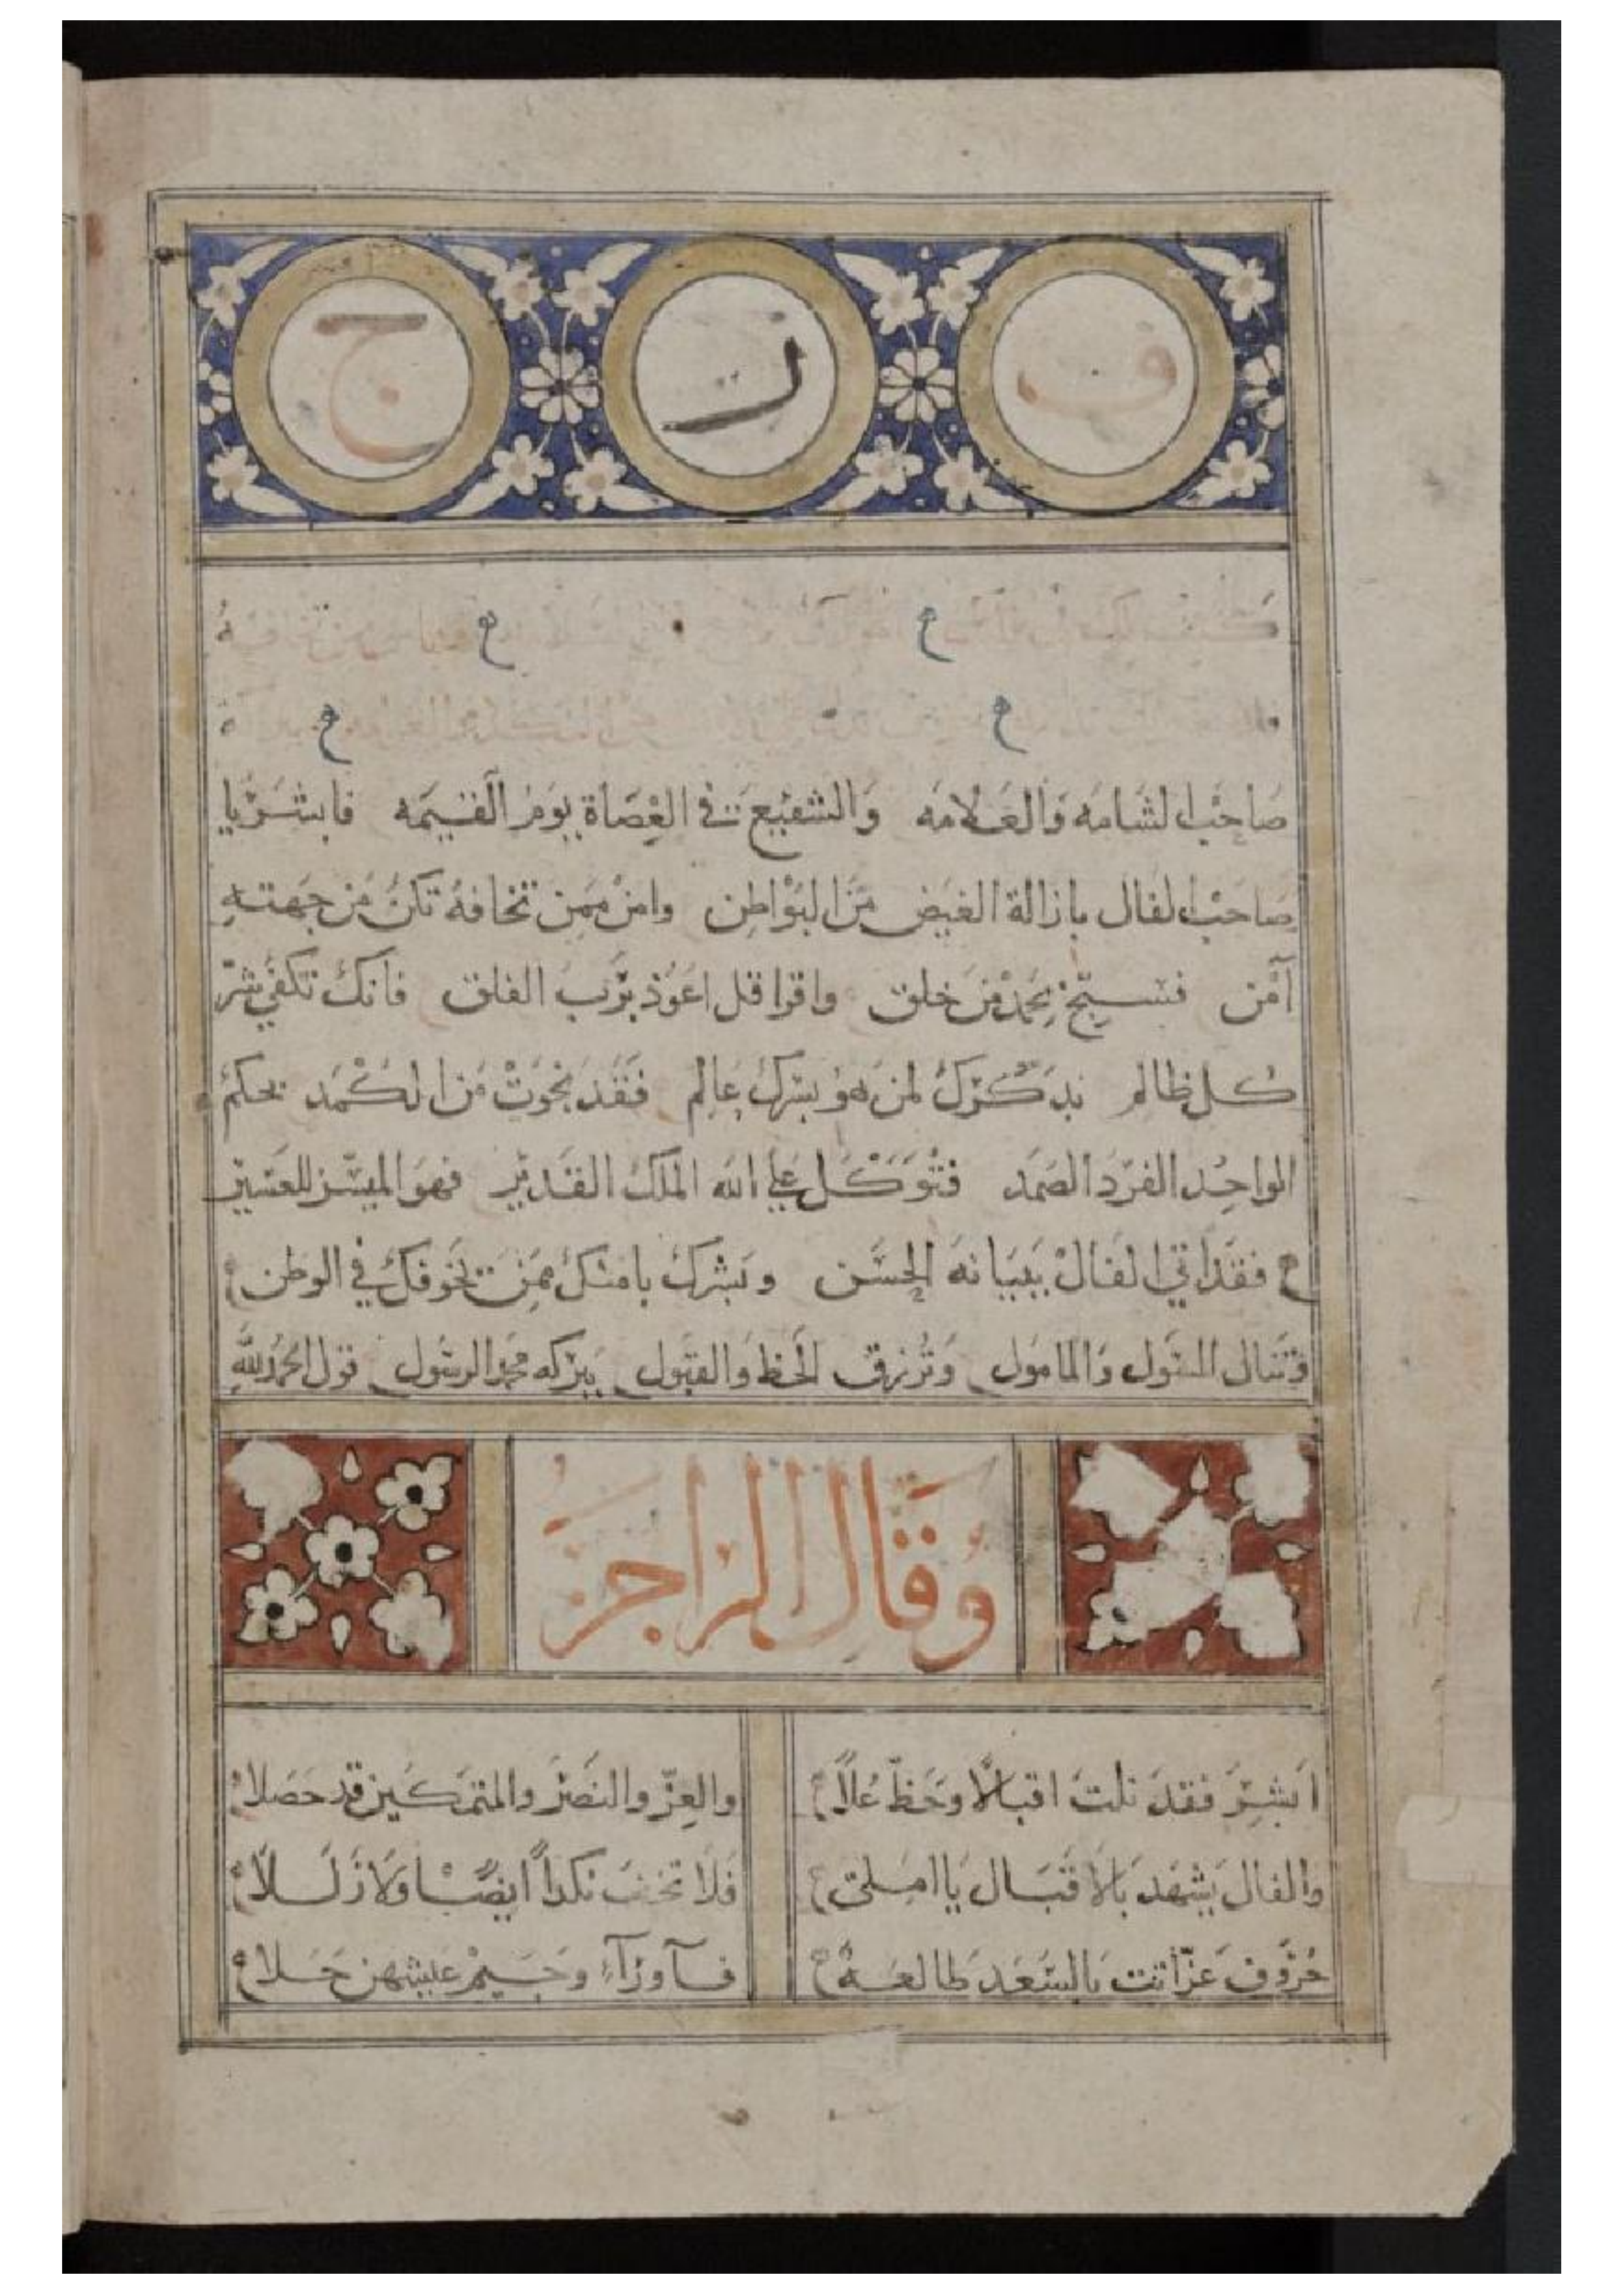 ف ر ج
صَاحِبُ الشَامَه وَالعَلامَه وَالشفيع في العُصَاة يَومَ القيمَه فابشر يا
صَاحبُ الفال بازالة الغيض مَن البَواطِن وامن ممِن تخافهُ تكن من جهته
آمن فسبّح بحَمد مَن خلق واقرا قل اعَوُذ برَب الفلق فانك تكفى شرّ
كل ظالم بذكرك لمن هو بسرك عالم فقد نجوت من الكمد بحكم
الواحِد الفرد الصَمد فتوكل على الله الملك القدير فهوَ الميسّر للعَسير
ح فقد اتى الفال ببيانه الحسَن وبشرك بامنك ممن تخوفك في الوطن
فتنال السَول وَالمامَول وَترزق الحظ وَالقبَول ببركه محمد الرسَول قول الحمد لله
وَقَال الراجز
ابشر فقد نلت اقبالًا وحَظّ عُلاً والعِزّ والنصَر والتمكين قد حَصَلا
والفال يشهَد بالاقبَال يا املى فَلا تخف نكداً ايضًا ولا زللاً
حُروف عَزّ اتت بالسَعَد طالعَة فآ ورآء وجيم عيشهن حَلا